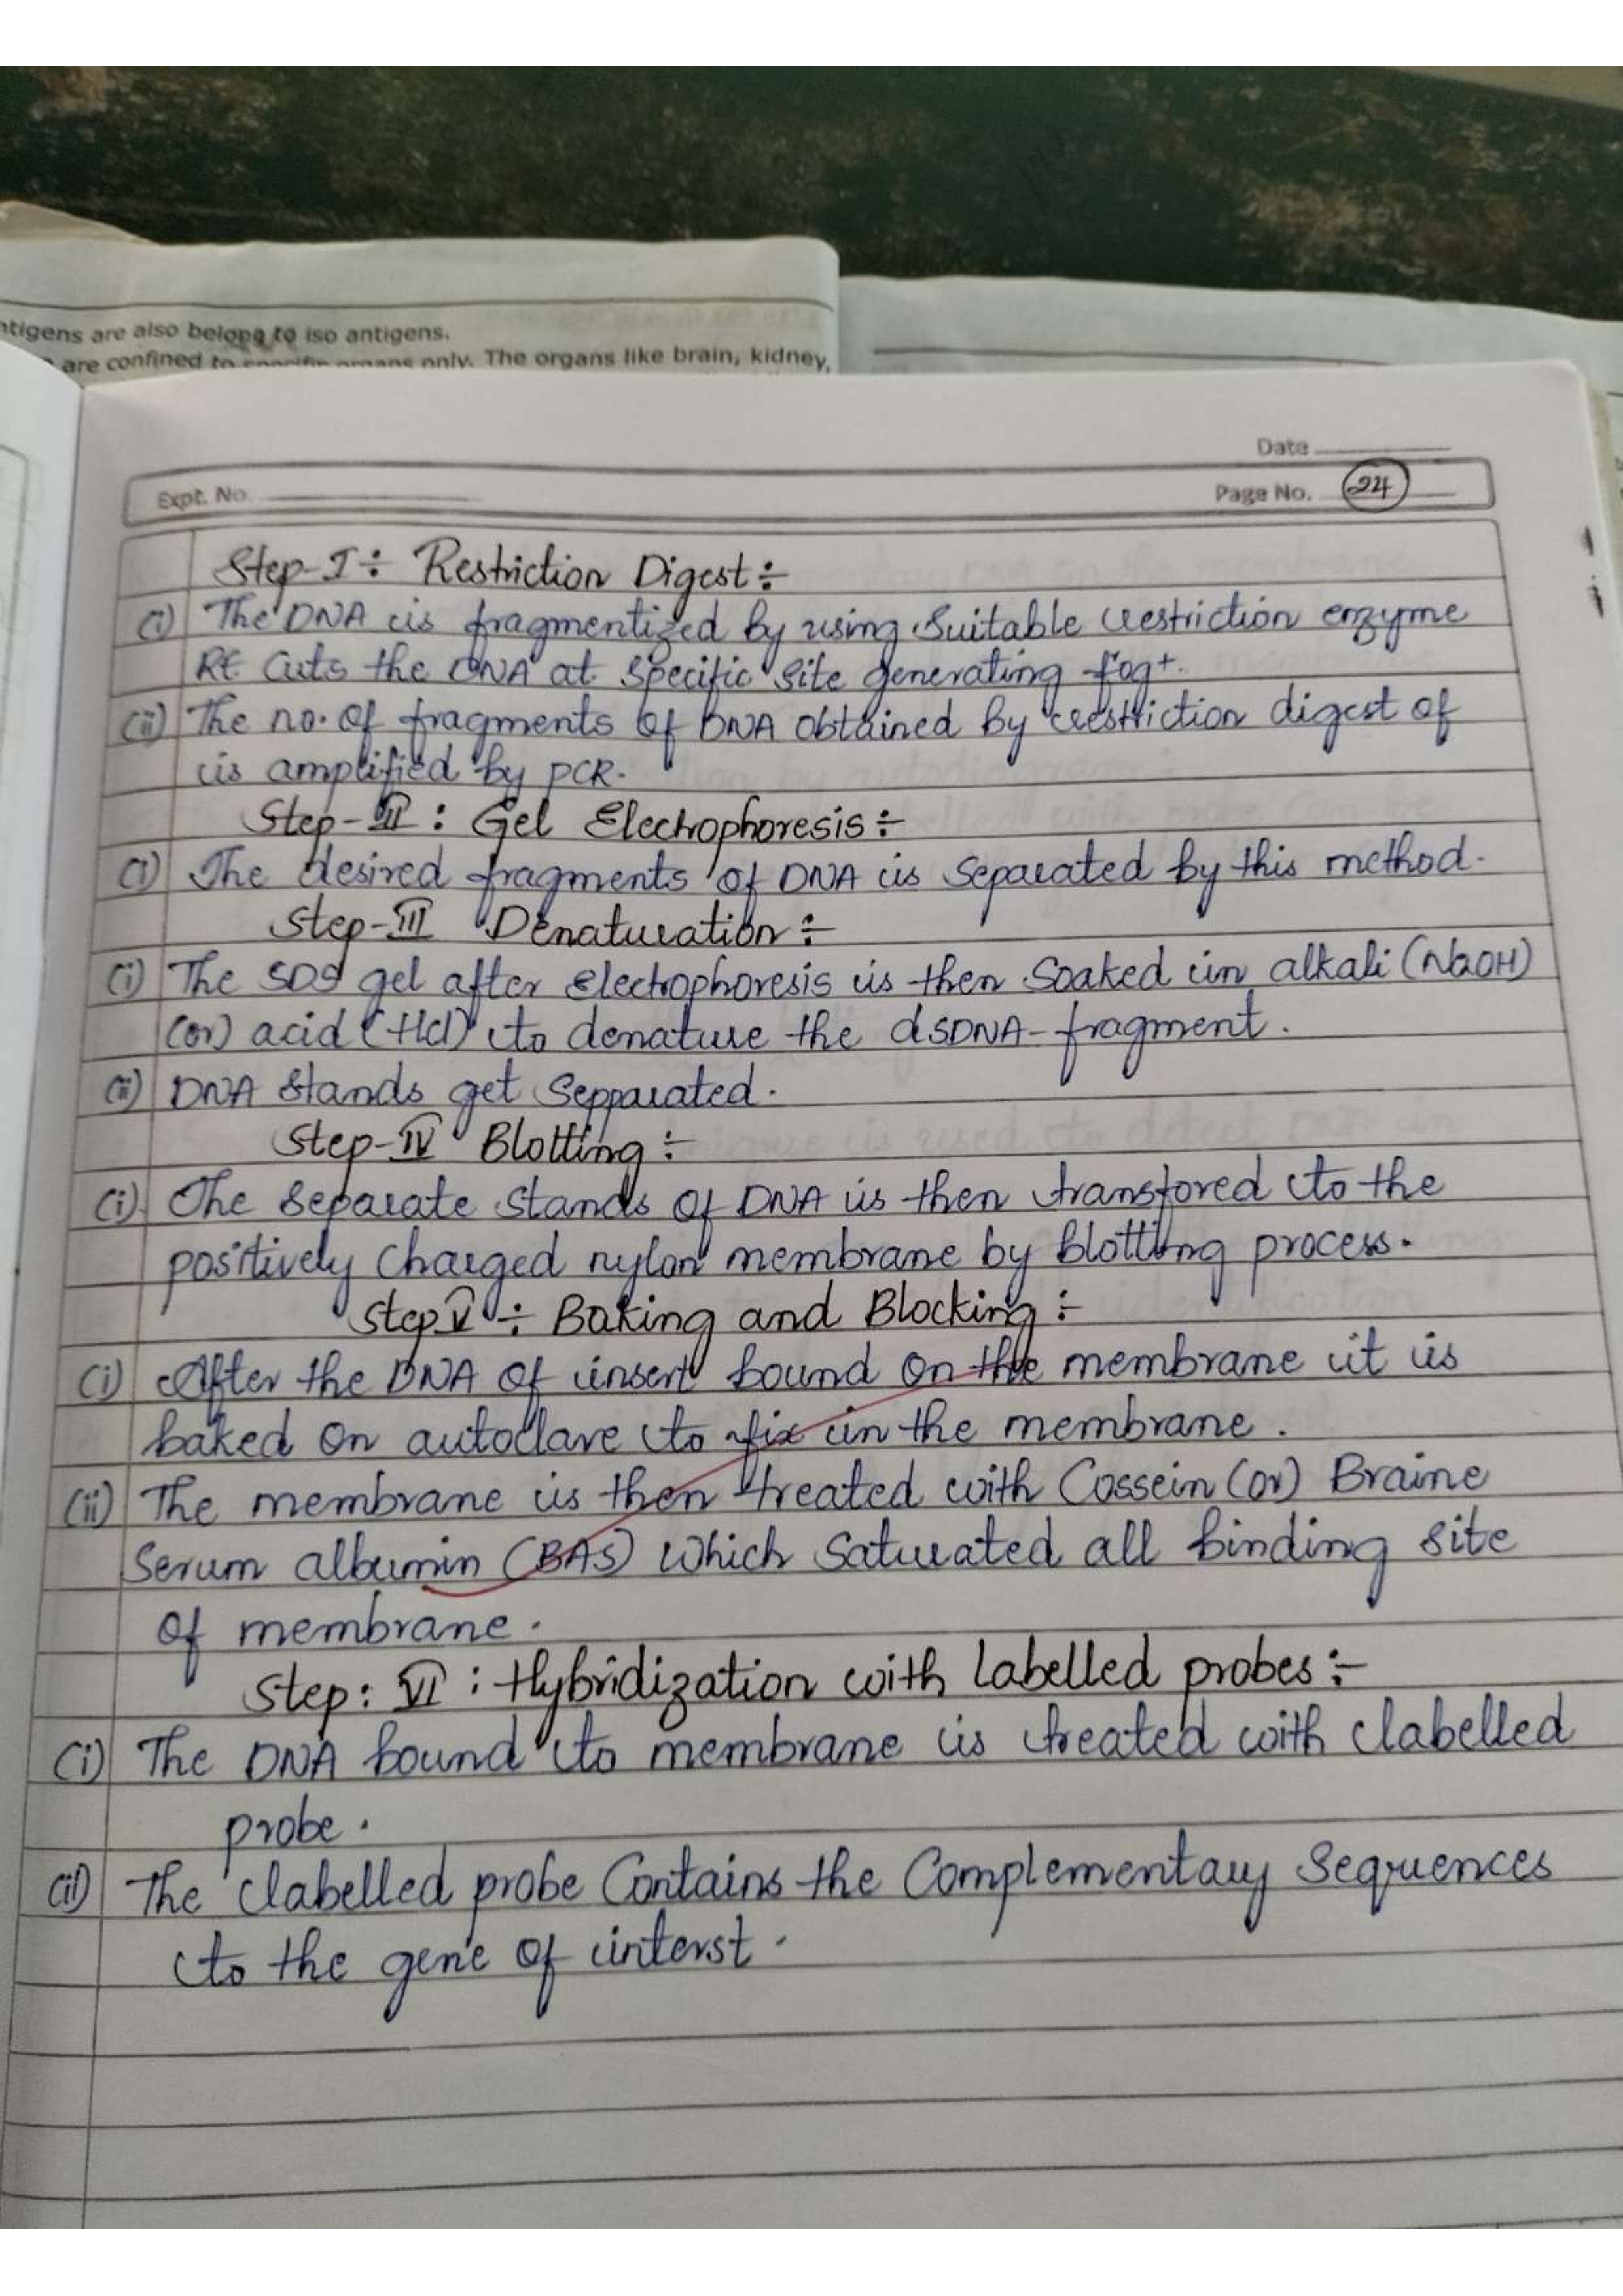 ntigens are also belong to iso antigens.
are confined to specific organs only. The organs like brain, kidney,
Date
Expt. No.
Page No. 24
Step-I÷ Restriction Digest÷
(i) The DNA is fragmentized by using Suitable restriction enzyme
RE Cuts the DNA at Specific Site generating fog+.
(ii) The no. of fragments of DNA obtained by restriction digest of
is amplified by PCR.
Step-II : Gel Electrophoresis÷
(i) The desired fragments of DNA is Separated by this method.
Step-III Denaturation÷
(i) The SDS gel after Electrophoresis is then Soaked in alkali (NaOH)
(or) acid (Hcl) to denature the dsDNA-fragment.
(ii) DNA Stands get Sepparated.
Step-IV Blotting÷
(i) The Separate Stands of DNA is then transfored to the
positively Charged nylon membrane by blotting process.
Step V ÷ Baking and Blocking÷
(i) After the DNA of insert bound on the membrane it is
baked on autoclave to fix in the membrane.
(ii) The membrane is then treated with Cossein (or) Braine
Serum albumin (BAS) Which Saturated all binding site
of membrane.
Step: VI : Hybridization with labelled probes:-
(i) The DNA bound to membrane is treated with labelled
probe.
(ii) The labelled probe Contains the Complementary Sequences
to the gene of interst.